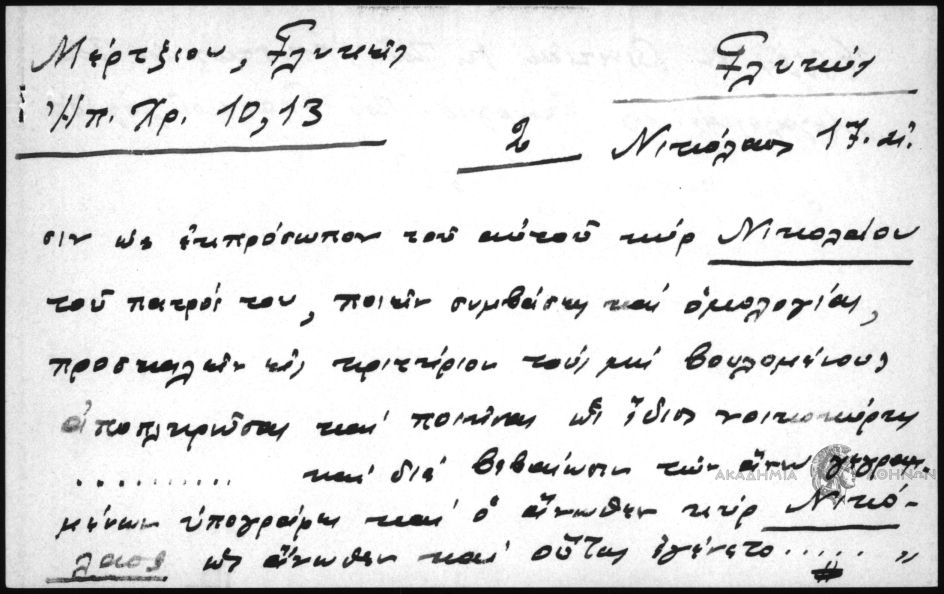 Μέρτζιου, Γλυκεῖς
Γλυκύς
Ἠπ. Χρ. 10, 13
2 Νικόλαος 17. αἰ.
σιν ὡς ἐκπρόσωπον τοῦ αὐτοῦ κύρ Νικολάου
τοῦ πατρός του, ποιεῖν συμβάσεις καί ὁμολογίας,
προσκαλεῖν εἰς κριτήριον τούς μή βουλομένους
ἀποπληρῶσαι καί ποιεῖναι ὡς ἴδιος νοικοκύρης
.......... καί διά βεβαίωσιν τῶν ἄνω γεγραμ-
μένων ὑπογράφει καί ὁ ἄνωθεν κύρ Νικό-
λαος ὡς ἄνωθεν καί οὕτως ἐγένετο ..... "
ΑΚΑΔΗΜΙΑ ΑΘΗΝΩΝ